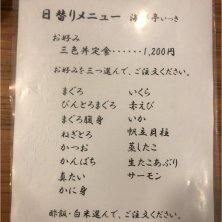 日替りメニュー 海 亭いっき
お好み
三色丼定食・・・・・・1,200円
お好みを三つ選んで、ご注文ください。
まぐろ いくら
びんとろまぐろ 赤えび
まぐろ腹身 いか
ねぎとろ 帆立貝柱
かつお 蒸したこ
かんぱち 生たこあぶり
真たい サーモン
かに身
酢飯・白米選んで、ご注文ください。